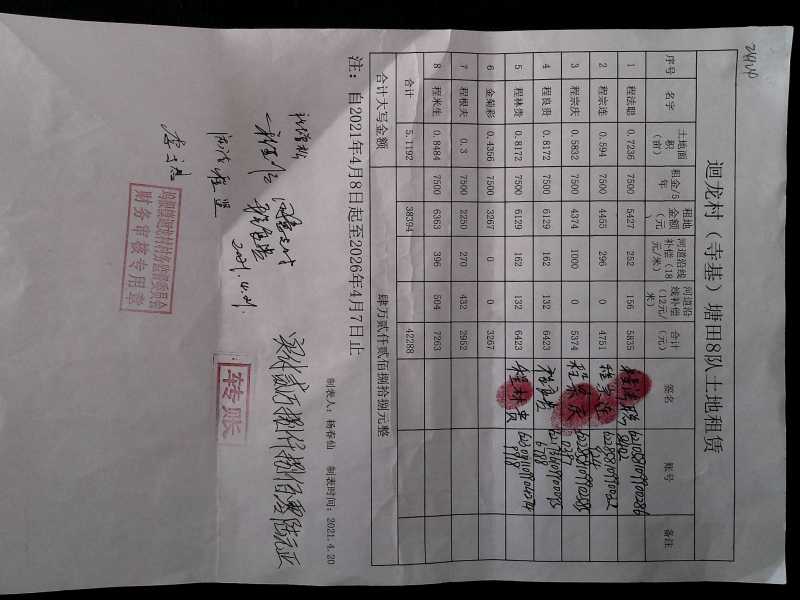 迴龙村（寺基）塘田8队土地租赁
序号 名字 土地面积（亩） 租金/5年 租地金额（元） 河道沿线补偿（18元/米） 河道沿线补偿（12元/米） 合计（元） 签名 账号 备注
1 程法聪 0.7236 7500 5427 252 156 5835
2 程宗连 0.594 7500 4455 296 0 4751
3 程宗庆 0.5832 7500 4374 1000 0 5374 程宗庆
4 程良贵 0.8172 7500 6129 162 132 6423
5 程林贵 0.8172 7500 6129 162 132 6423 程林贵
6 金菊彩 0.4356 7500 3267 0 0 3267
7 程根夫 0.3 7500 2250 270 432 2952
8 程米生 0.8484 7500 6363 396 504 7263
合计 5.1192 38394 42288
合计大写金额 肆万贰仟贰佰捌拾捌元整
注：自2021年4月8日起至2026年4月7日止
制表人：杨春仙 制表时间：2021.4.20
同意支付
2021.4.21.
实付贰万捌仟捌佰零陆元正
转账
财务审核专用章